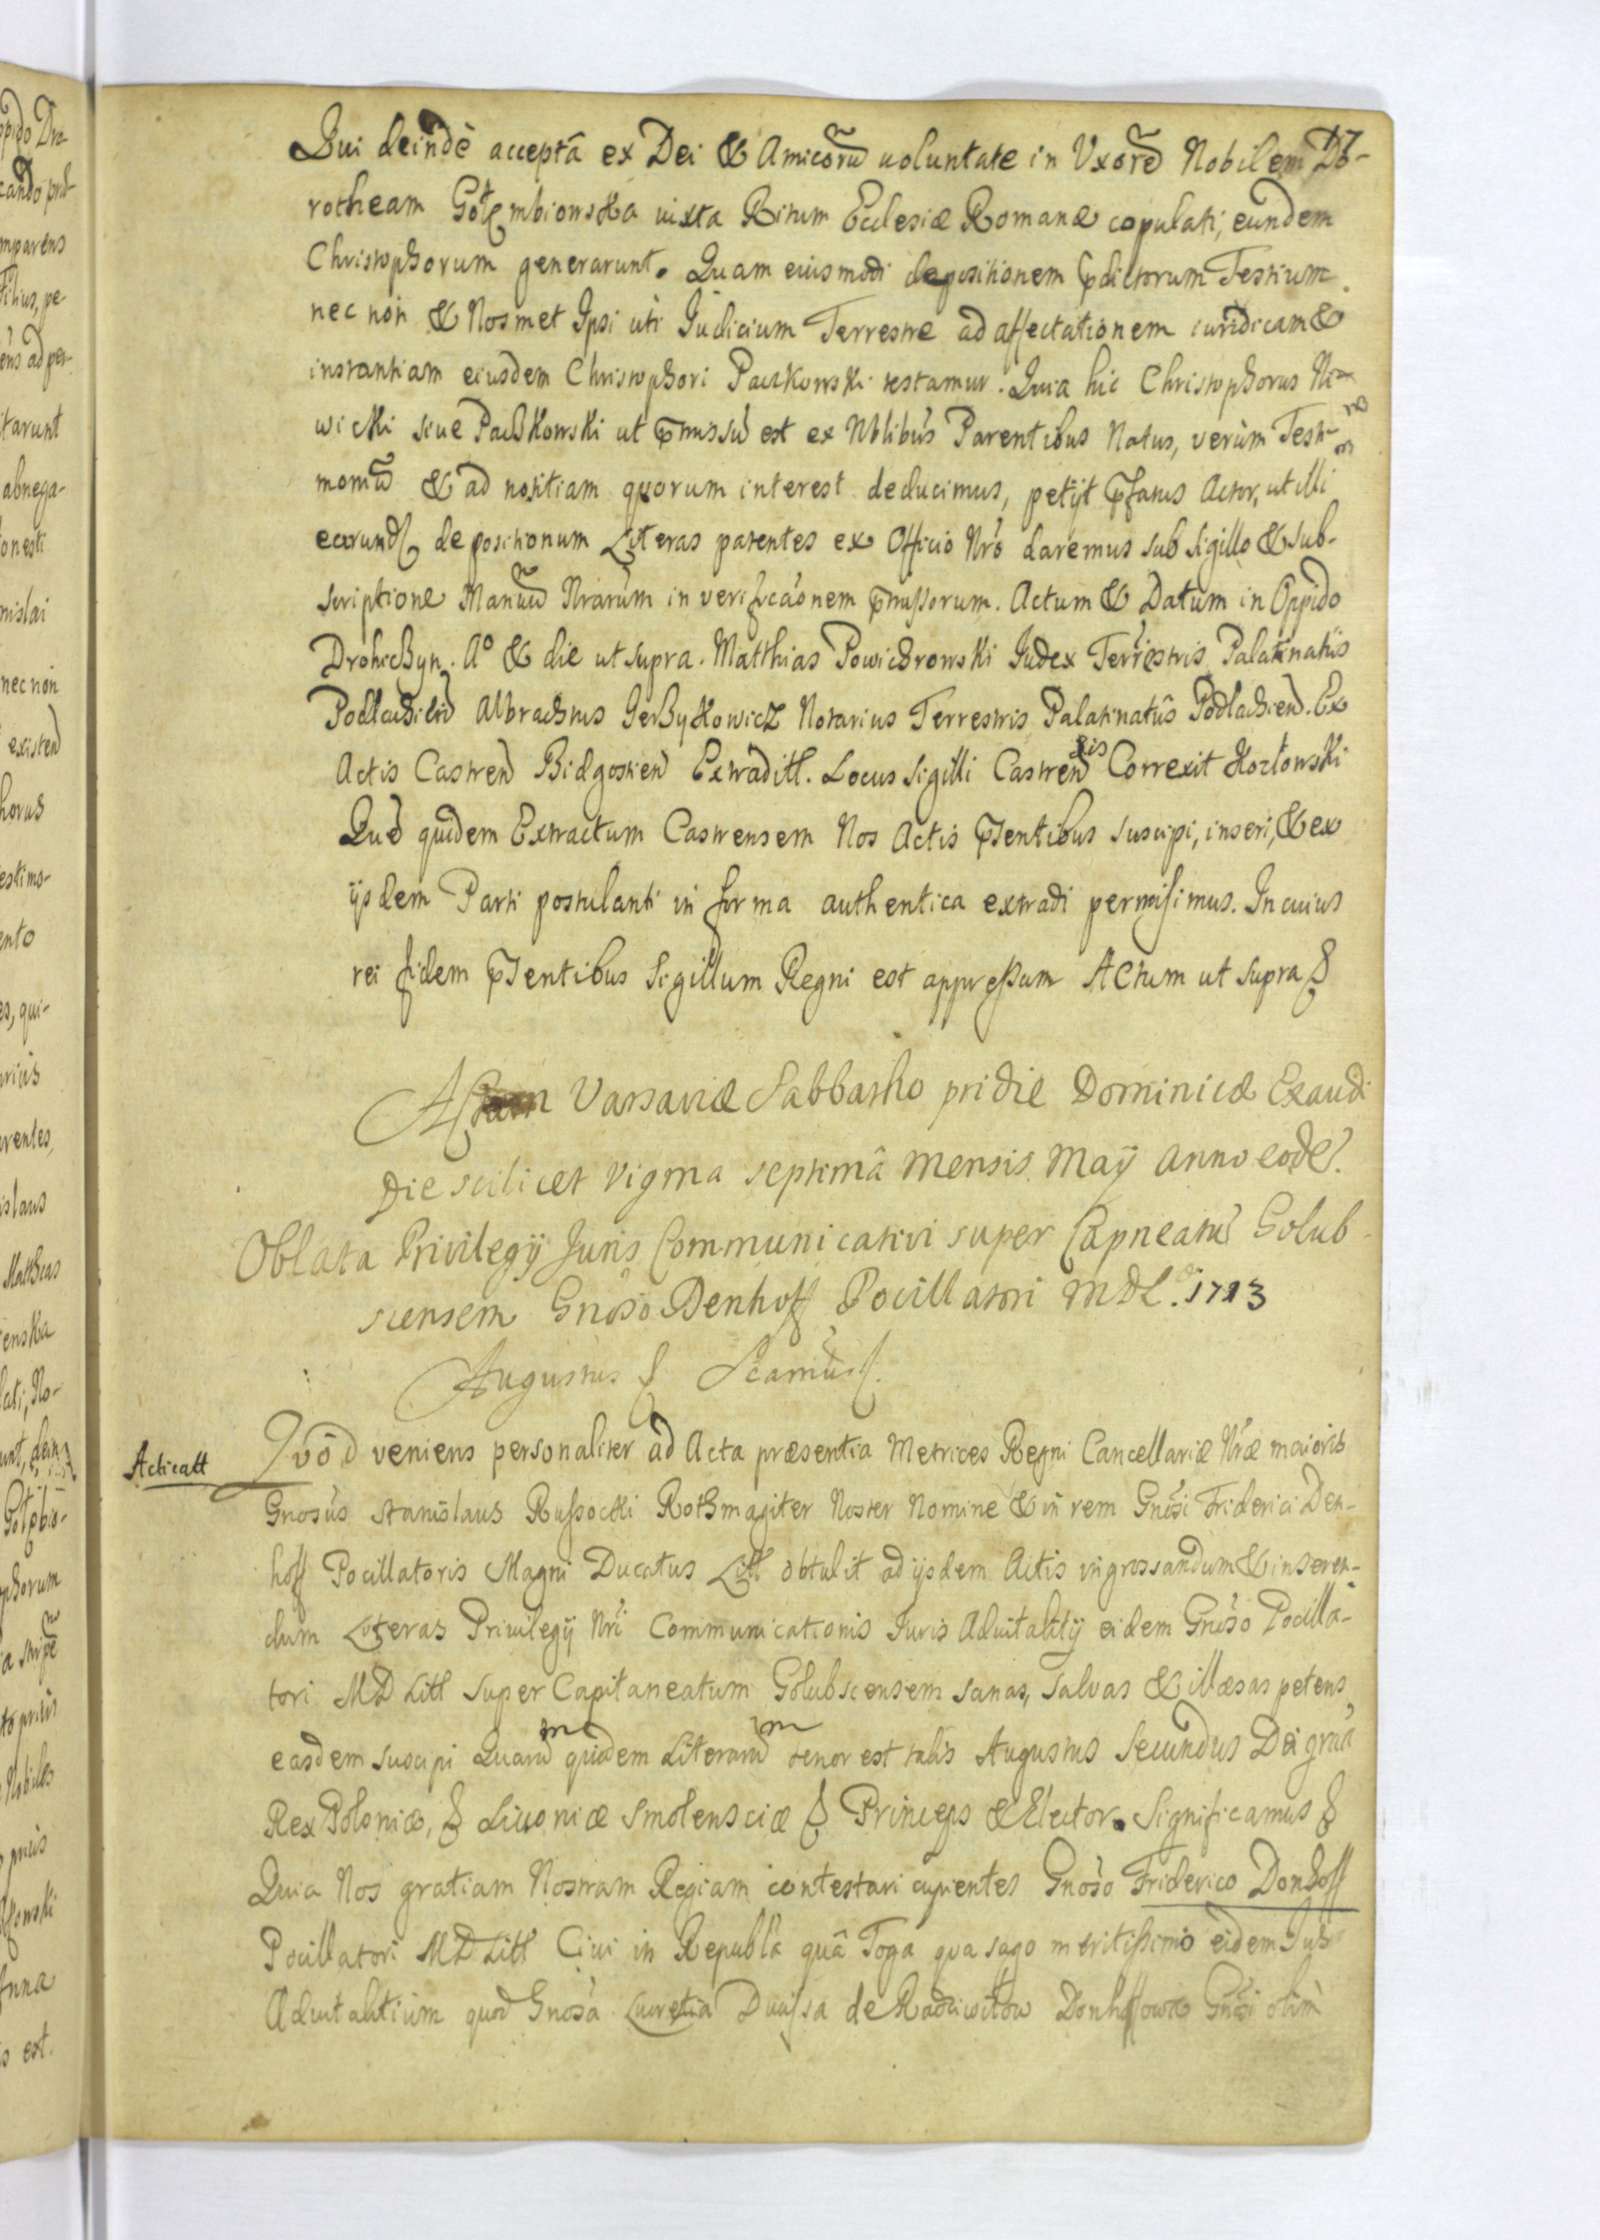 Qui deindè acceptâ ex Dei & Amicorũ uoluntate in Vxorẽ Nobilem Do-
rotheam Gołembionska iuxta Ritum Ecclesiæ Romanæ copulati, eundem
Christophorum generarunt. Quam eiusmodi depositionem pdictorum Testium
nec non & Nosmet Ipsi uti Iudicium Terrestre ad affectationem iuridicam &
instantiam eiusdem Christophori Paczkowski testamur. Quia hic Christophorus Ni-
wicki siue Paszkowski ut pmissũ est ex Nblibus Parentibus Natus, verùm Testi-
moniũ & ad notitiam quorum interest deducimus, petÿt pfatus Actor, ut illi
earund depositionum Literas patentes ex Officio Nro daremus sub Sigillo & sub-
scriptione Manuũ Nrarum in verificãonem pmissorum. Actum & Datum in Oppido
Drohiczyn. Aº & die ut supra. Matthias Powichrowski Iudex Terrestris Palatinatûs
Podlachień Albrachtus Gerzykowicz Notarius Terrestris Palatinatûs Podlachień. Ex
Actis Castreń Bidgostień Extradítt. Locus Sigilli Castreńsis Correxit Kozłowski
Qué quidem Extractum Castrensem Nos Actis psentibus suscipi, inseri, & ex
ijsdem Parti postulanti in forma authentica extradi permisimus. In cuius
rei fidem psentibus Sigillum Regni est appressum Actum ut supra &
Varsaviæ Sabbatho pridie Dominicæ Exaudi
Die scilicet vigma septimâ Mensis Maÿ Anno eodé.
Oblata Privilegÿ Juris Communicativi super Capneatũ Golub-
scensem Gnoso Denhoff Pocillatori MDL. 1713
Augustus &
Acticatt Quód veniens personaliter ad Acta præsentia Metrices Regni Cancellariæ Nræ maioris
Gnosus Stanislaus Russocki Rothmagiter Noster Nomine & in rem Gnosi Friderici Den-
hoff Pocillatoris Magni Ducatus Litt obtulit ad ijsdem Actis ingrossandum & inseren-
dum Literas Privilegÿ Nri Communicationis Iuris Aduitalitÿ eidem Gnoso Pocilla-
tori MD Litt super Capitaneatum Golubscensem sanas, salvas & illæsas petens
easdem suscipi Quarum quidem Literarum tenor est talis Augustus Secundus Dei grãa
Rex Poloniæ, & Liuoniæ Smolensciæ & Princeps & Elector. Significamus &
Quia Nos gratiam Nostram Regiam contestari cupientes Gnoso Friderico Donhoff
Pocillatori MD Litt Ciui in Republà quâ Toga qua sago meritissimo eidem Jus
Aduitalitium quod Gnosa Lucretia de Radziwiłłow Donhoffowa Gnosi olim